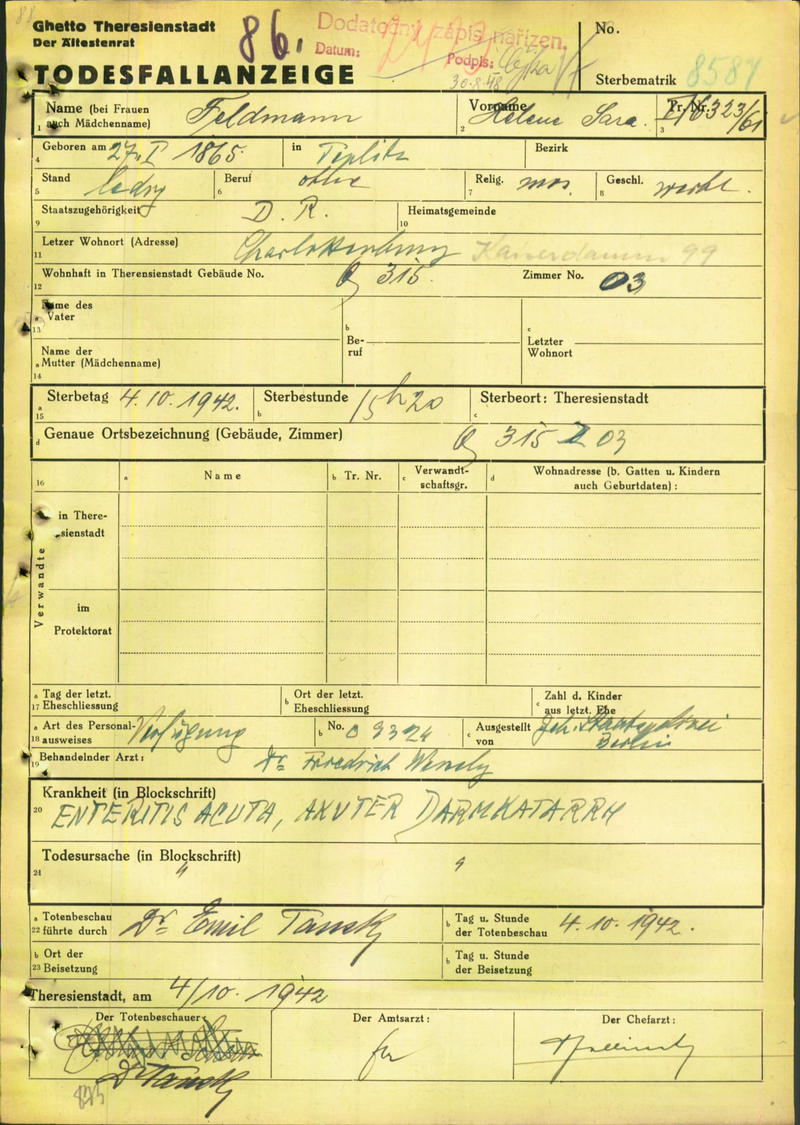 Ghetto Theresienstadt
Der Ältestenrat
TODESFALLANZEIGE
86.
Dodatočný zápis nařízen.
Datum:
Podpis:
30.8.48
No.
Sterbematrik 8587
Name (bei Frauen auch Mädchenname) Feldmann
1
Vorname Helene Sara.
2
Tr. Nr. I/16323/61
3
Geboren am 27. I 1865. in Teplitz Bezirk
4
Stand ledig Beruf ohne Relig. mos. Geschl. weibl.
5 6 7 8
Staatszugehörigkeit D. R. Heimatsgemeinde
9 10
Letzer Wohnort (Adresse) Charlottenburg Kaiserdamm 99
11
Wohnhaft in Therensienstadt Gebäude No. Q 315. Zimmer No. 03
12
Name des
a Vater
13
b
Be-
ruf
c
Letzter
Wohnort
Name der
a Mutter (Mädchenname)
14
Sterbetag 4.10.1942. Sterbestunde 15h20 Sterbeort: Theresienstadt
a 15 b c
d Genaue Ortsbezeichnung (Gebäude, Zimmer) Q 315 Z 03
16 a Name b Tr. Nr. c Verwandt-schaftsgr. d Wohnadresse (b. Gatten u. Kindern auch Geburtdaten):
Verwandte
in There-
sienstadt
im
Protektorat
a Tag der letzt.
17 Eheschliessung
b Ort der letzt.
Eheschliessung
c Zahl d. Kinder
aus letzt. Ehe
a Art des Personal-
18 ausweises Verfügung
b No. 09324
c Ausgestellt
von Geh. Staatspolizei
Berlin
19 Behandelnder Arzt: Dr Friedrich Wensly
Krankheit (in Blockschrift)
20 ENTERITIS ACUTA, AKUTER DARMKATARRH
Todesursache (in Blockschrift)
21 " "
a Totenbeschau
22 führte durch Dr Emil Tansky
b Tag u. Stunde
der Totenbeschau 4.10.1942.
b Ort der
23 Beisetzung
b Tag u. Stunde
der Beisetzung
Theresienstadt, am 4/10. 1942
Der Totenbeschauer: Der Amtsarzt: Der Chefarzt:
Dr Tansky